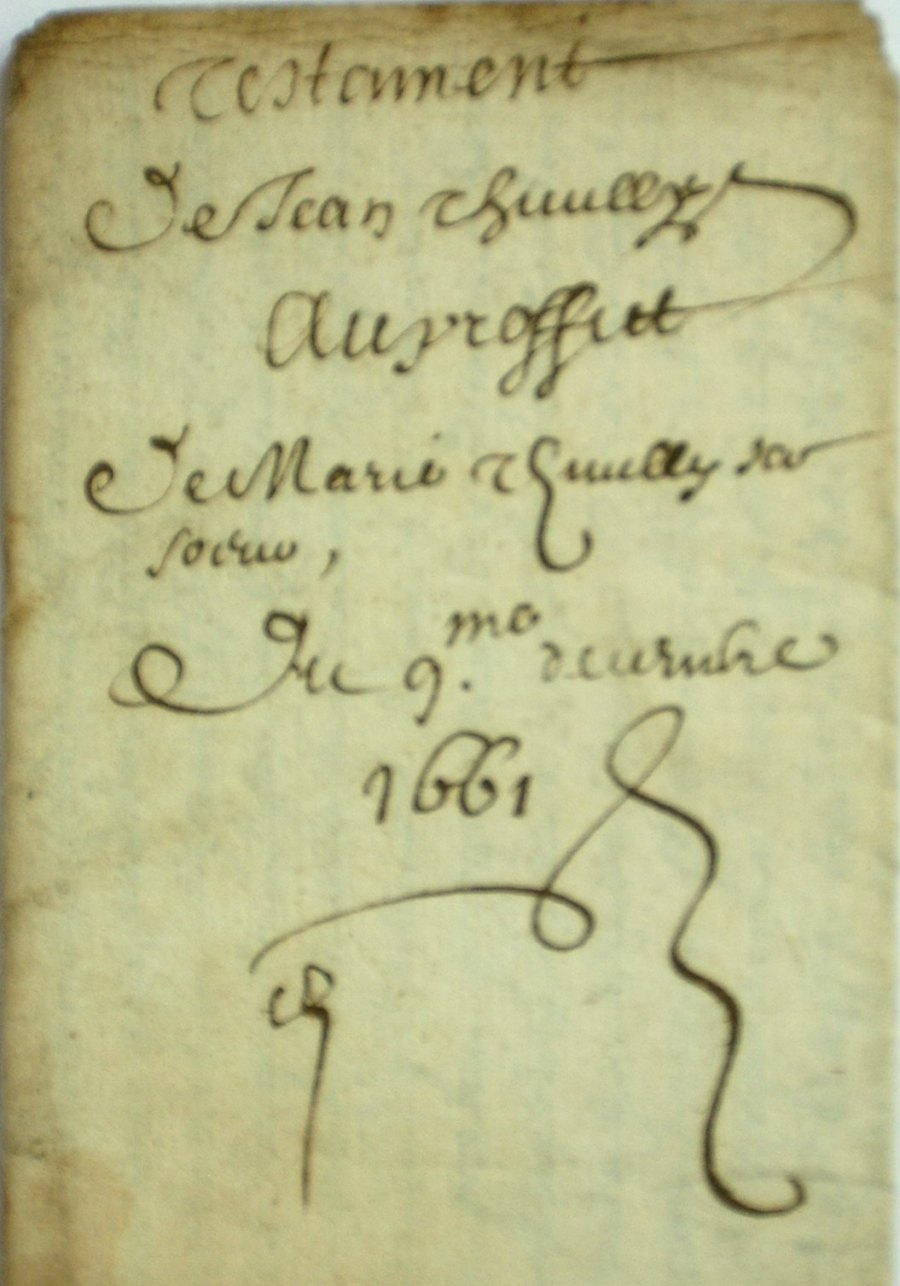 Testament
De Jean Thuully
Au proffict
De Marie Thuully sa
soeur,
Du 9.me decembre
1661